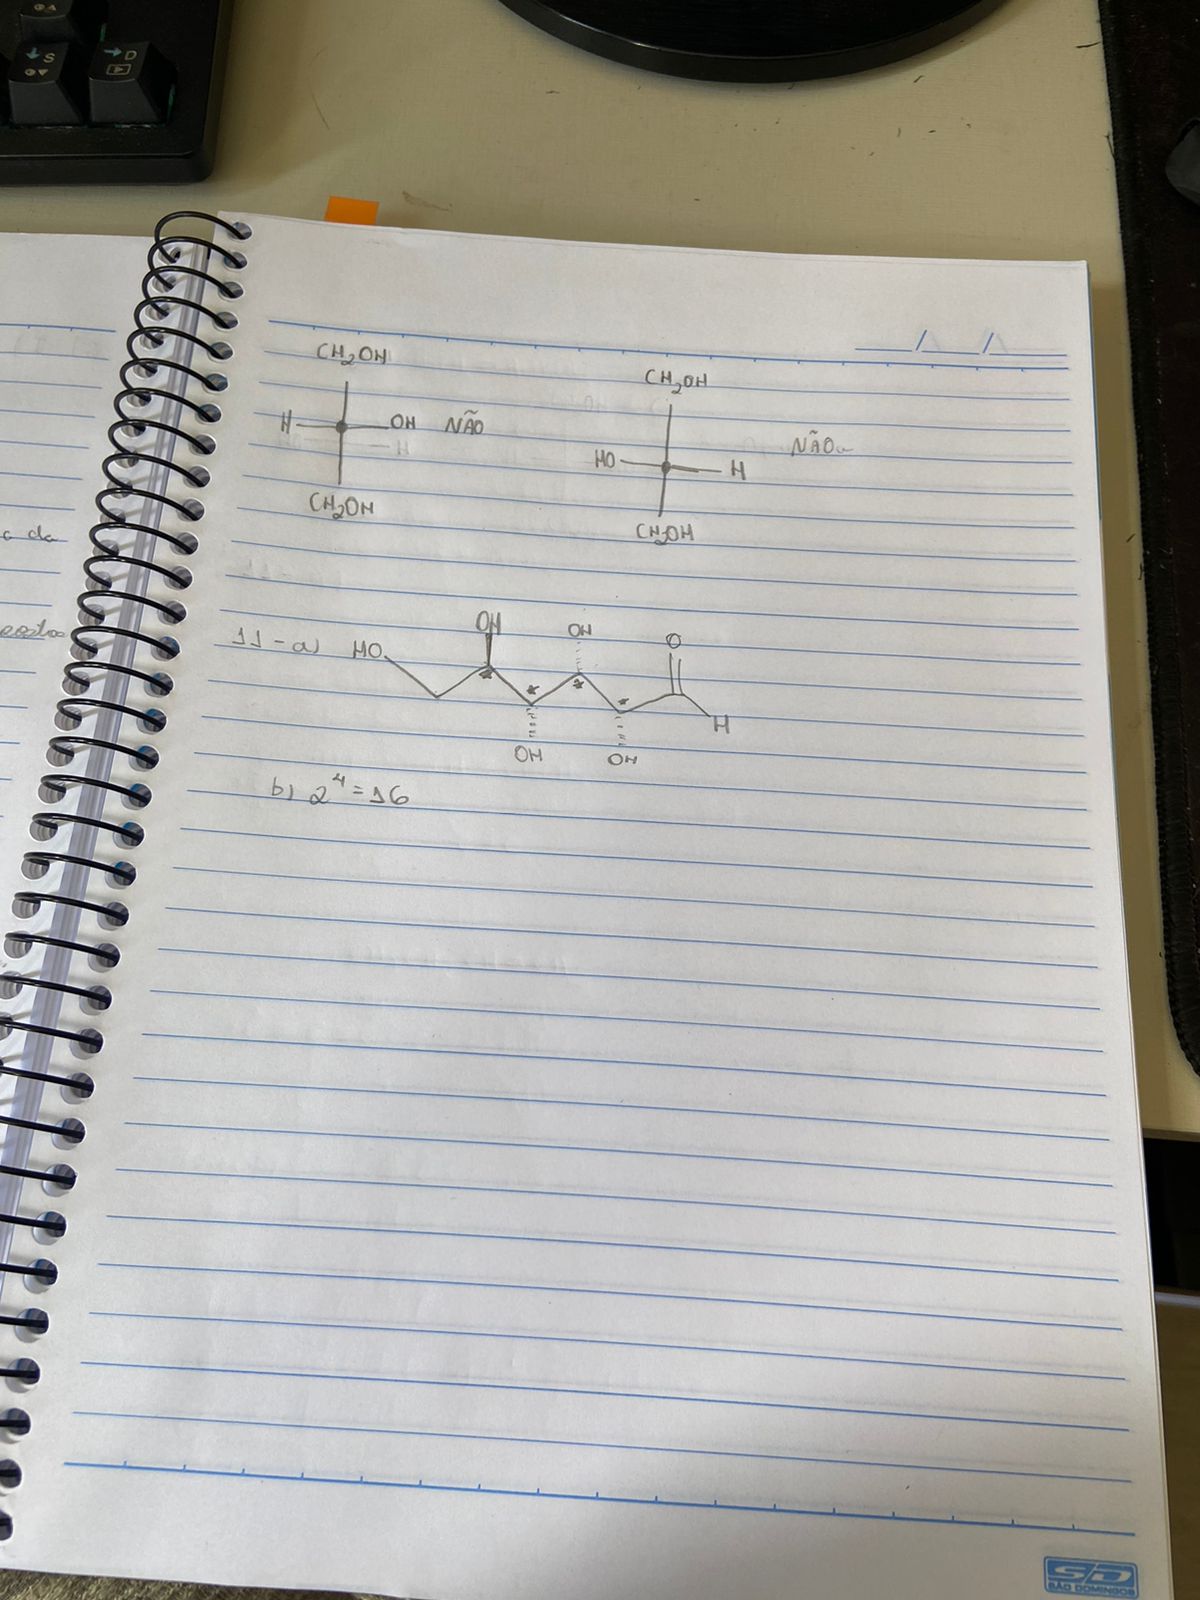 CH2OH
H OH NÃO
CH2OH
CH2OH
HO H NÃO
CH2OH
11-a) HO OH OH O
* * * *
OH OH H
b) 2^4 = 16
c da
S
D
SD
SÃO DOMINGOS